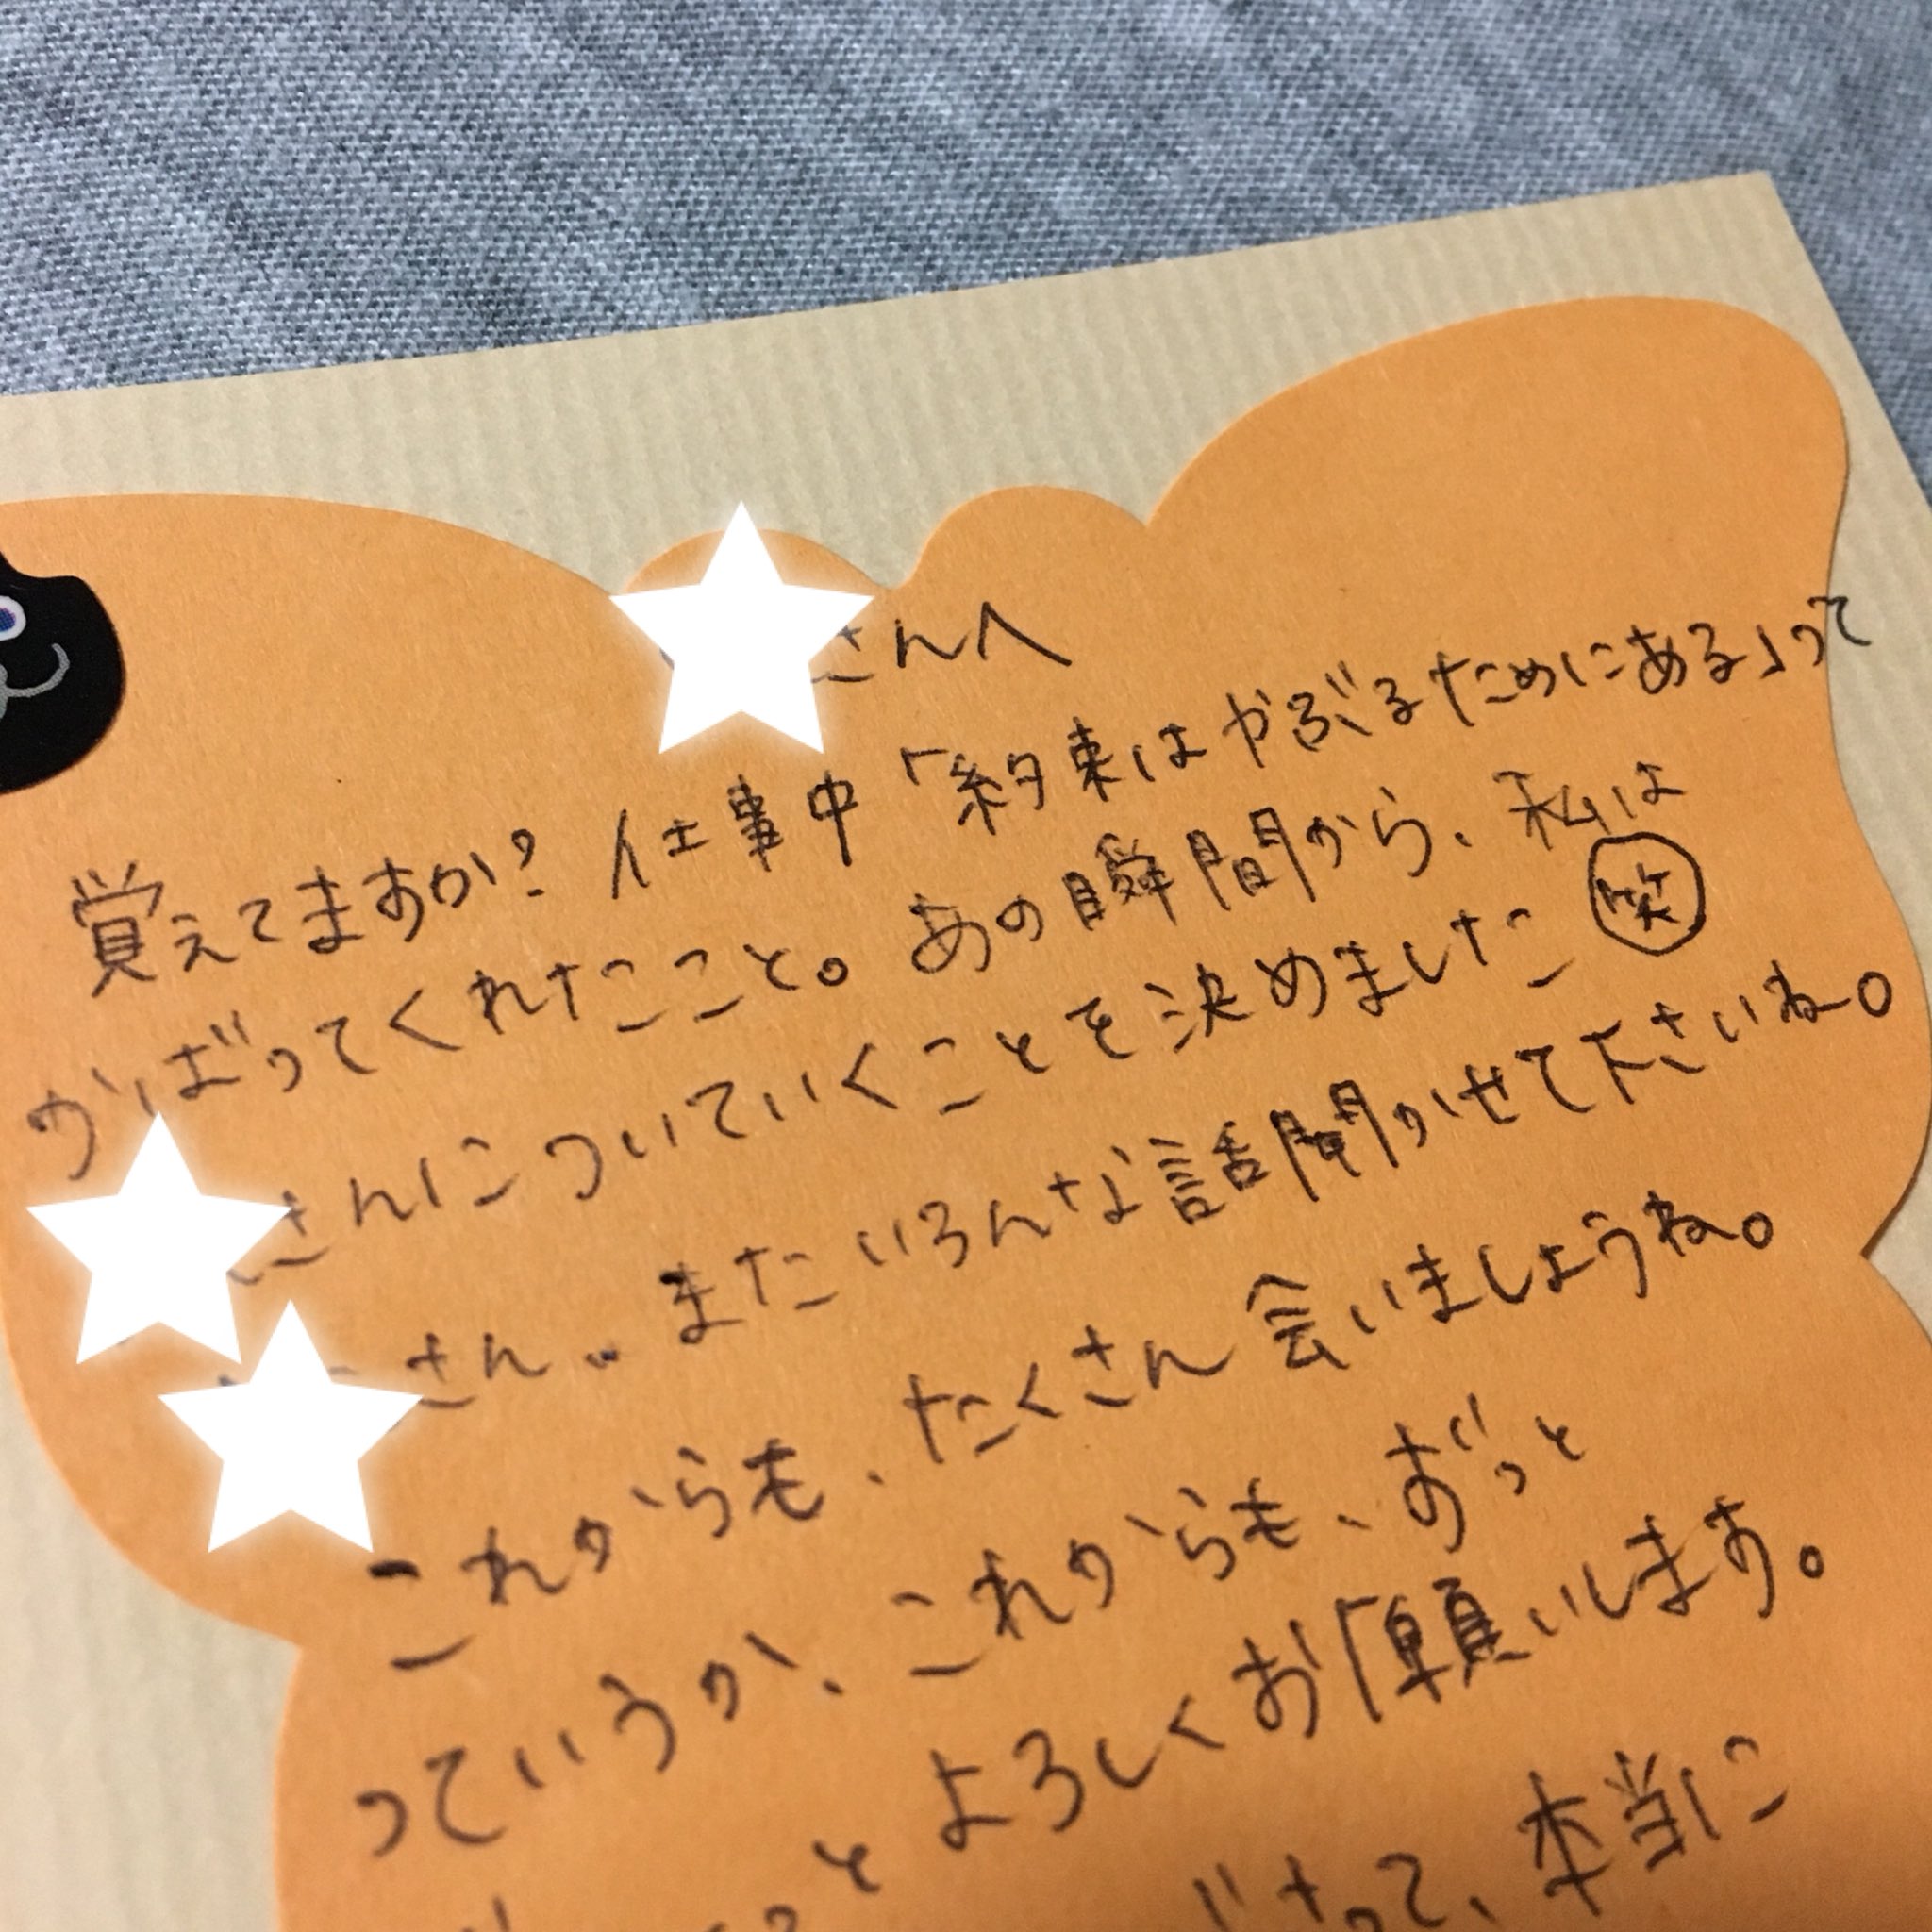 さんへ
覚えてますか? 仕事中「約束はやぶるためにある」って
かばってくれたこと。あの瞬間から、私は
さんについていくことを決めました㊗笑
さん。またいろんな話聞かせて下さいね。
これからも、たくさん会いましょうね。
っていうか、これからも、ずっと
っと よろしくお願いします。
って、本当に